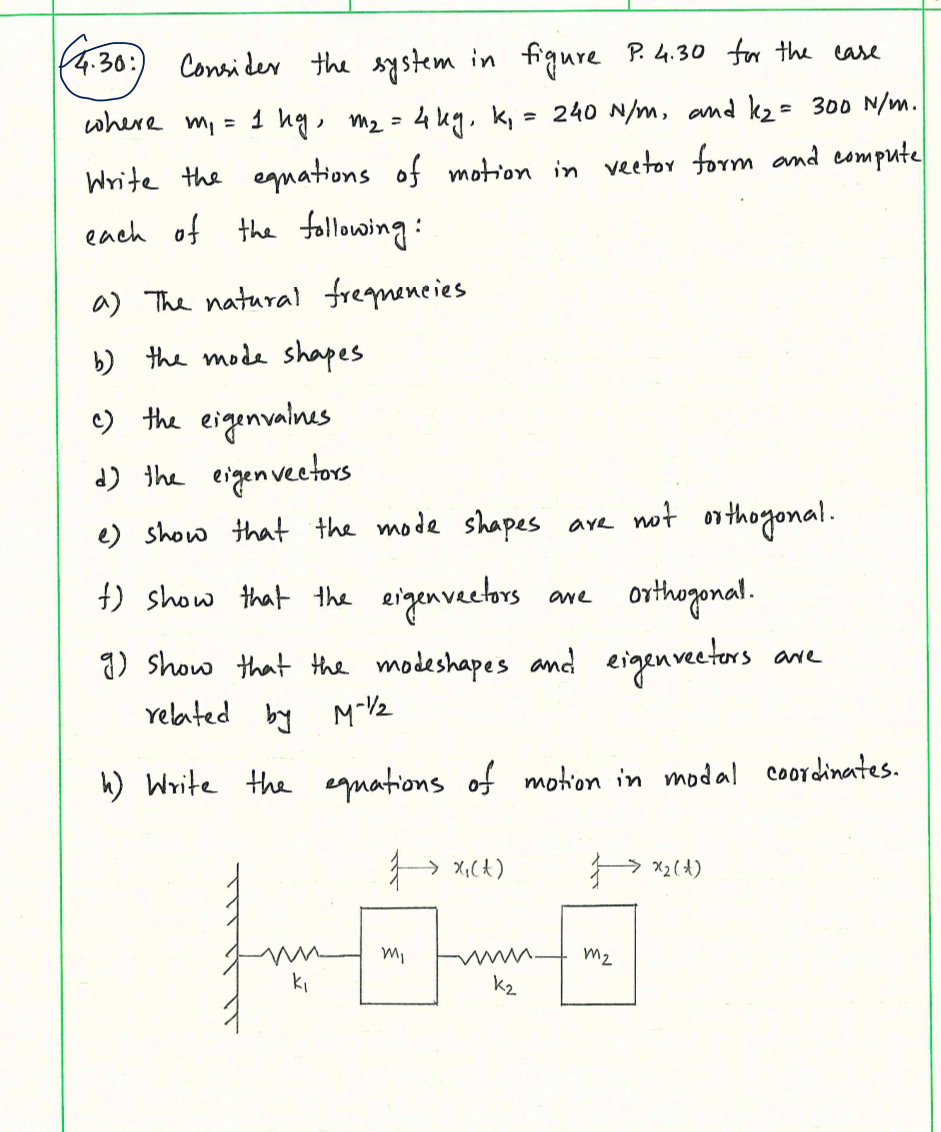 4.30: Consider the system in figure P. 4.30 for the case
where m₁ = 1 kg, m₂ = 4 kg, k₁ = 240 N/m, and k₂ = 300 N/m.
Write the equations of motion in vector form and compute
each of the following:
a) The natural frequencies
b) the mode shapes
c) the eigenvalues
d) the eigenvectors
e) show that the mode shapes are not orthogonal.
f) show that the eigenvectors are orthogonal.
g) Show that the modeshapes and eigenvectors are
related by M^-1/2
h) Write the equations of motion in modal coordinates.
x₁(t) x₂(t)
m₁ m₂
k₁ k₂